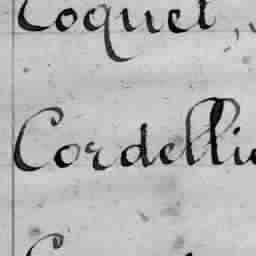 Coquet,
Cordelli